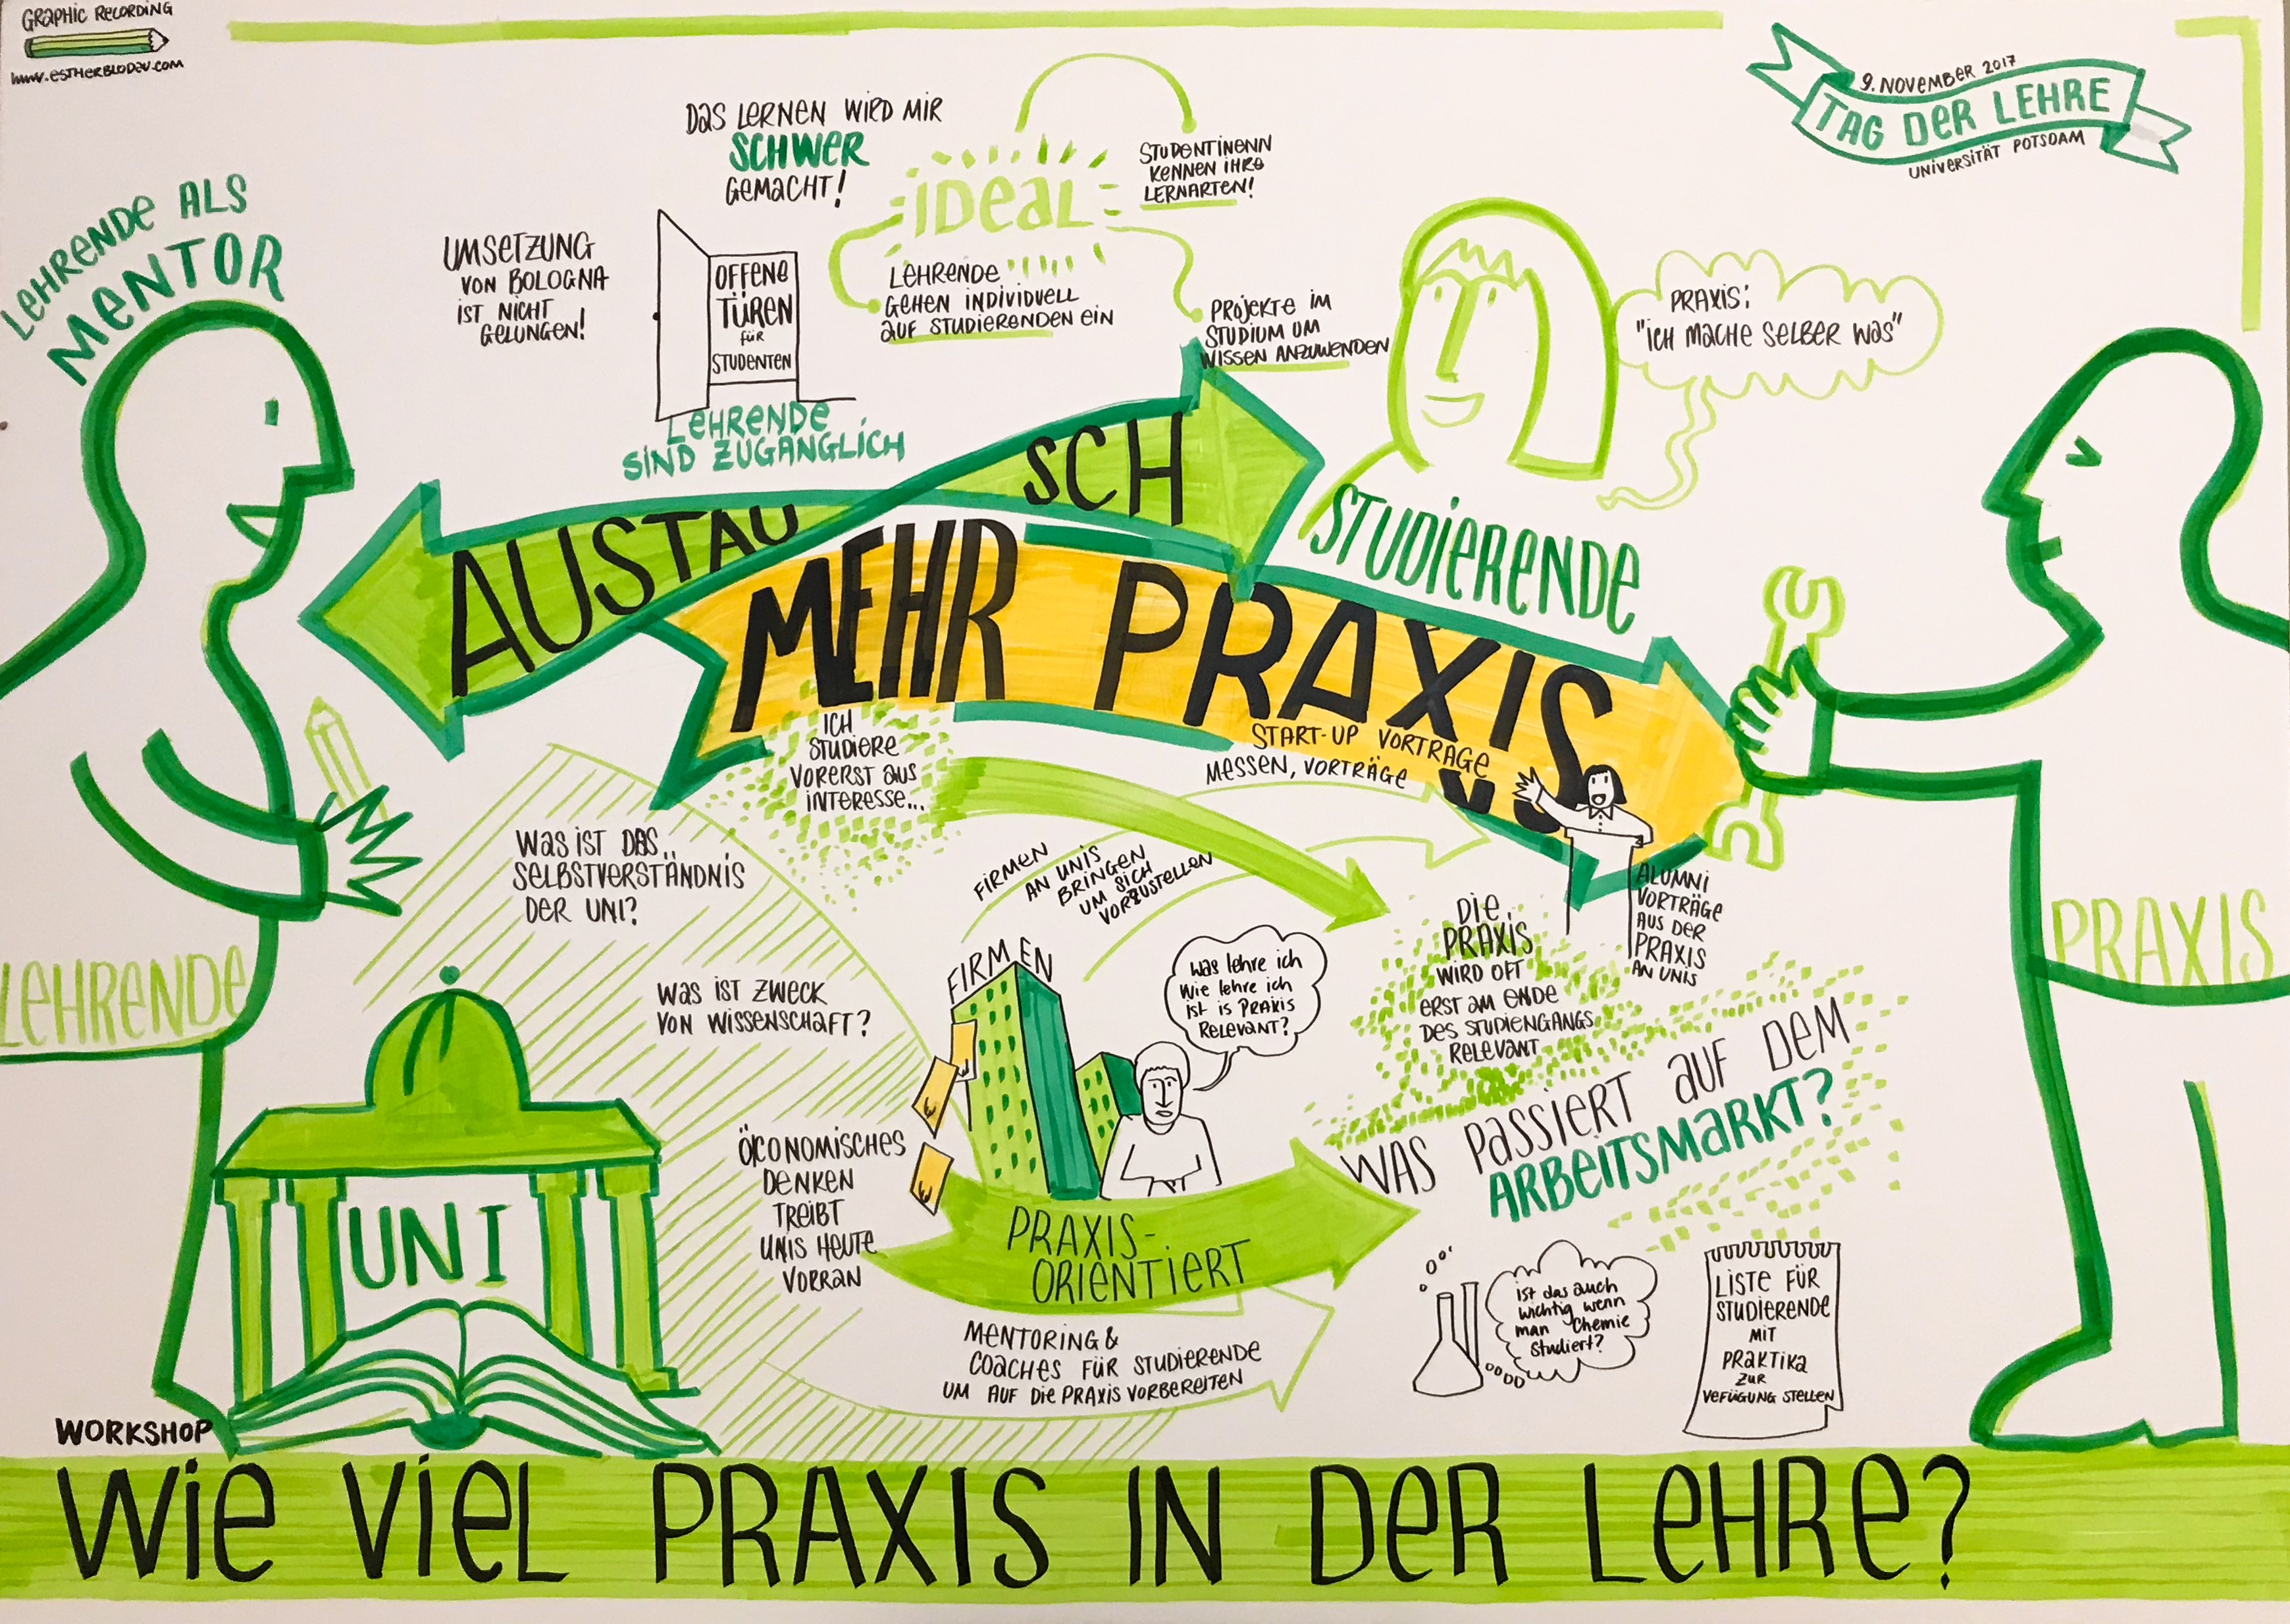 GRAPHIC RECORDING
www.ESTHERBLODAU.COM
9. NOVEMBER 2017
TAG DER LEHRE
UNIVERSITÄT POTSDAM
LEHRENDE ALS
MENTOR
DAS LERNEN WIRD MIR
SCHWER
GEMACHT!
UMSETZUNG
VON BOLOGNA
IST NICHT
GELUNGEN!
OFFENE
TÜREN
für
STUDENTEN
LEHRENDE
SIND ZUGÄNGLICH
IDEAL
STUDENTINENN
KENNEN IHRE
LERNARTEN!
LEHRENDE
GEHEN INDIVIDUELL
AUF STUDIERENDEN EIN
PROJEKTE IM
STUDIUM UM
WISSEN ANZUWENDEN
PRAXIS:
"ICH MACHE SELBER WAS"
STUDIERENDE
AUSTAUSCH
MEHR PRAXIS
ICH
STUDIERE
VORERST AUS
INTERESSE...
START-UP VORTRÄGE
MESSEN, VORTRÄGE
ALUMNI
VORTRÄGE
AUS DER
PRAXIS
AN UNIS
FIRMEN
AN UNIS
BRINGEN
UM SICH
VORZUSTELLEN
WAS IST DAS
SELBSTVERSTÄNDNIS
DER UNI?
WAS IST ZWECK
VON WISSENSCHAFT?
FIRMEN
Was lehre ich
Wie lehre ich
ist is PRAXIS
RELEVANT?
DIE
PRAXIS
WIRD OFT
ERST AM ENDE
DES STUDIENGANGS
RELEVANT
LEHRENDE
PRAXIS
WAS PASSIERT AUF DEM
ARBEITSMARKT?
ÖCONOMISCHES
DENKEN
TREIBT
UNIS HEUTE
VORRAN
UNI
PRAXIS-
ORIENTIERT
MENTORING &
COACHES FÜR STUDIERENDE
UM AUF DIE PRAXIS VORBEREITEN
ist das auch
wichtig wenn
man Chemie
studiert?
LISTE FÜR
STUDIERENDE
MIT
PRAKTIKA
ZUR
VEFÜGUNG STELLEN
WORKSHOP
WIE VIEL PRAXIS IN DER LEHRE?